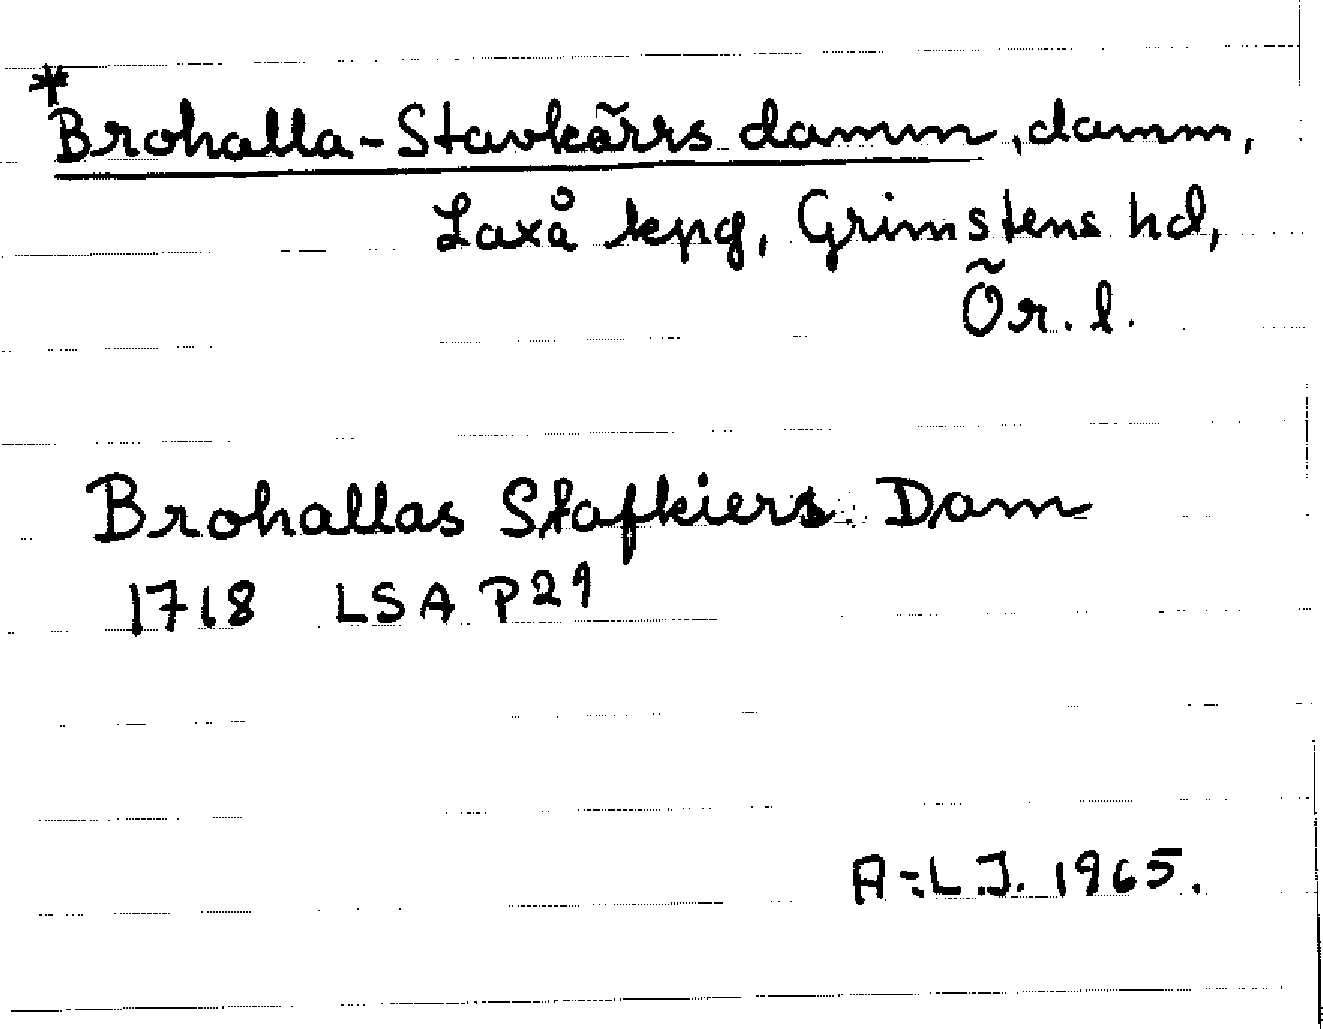 *Brohalla-Stavkärrs damm, damm,
Laxå kpg, Grimstens hd,
Ör. l.
Brohallas Stafkiers Dam
1718 LSA P21
A-L.J. 1965.